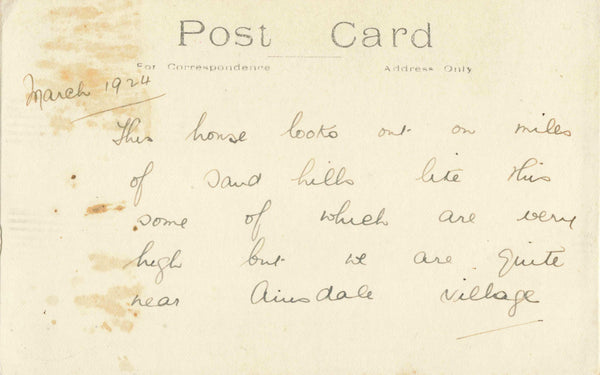 Post Card
For Correspondence Address Only
March 1924
This house looks out on miles
of sand hills like this
some of which are very
high but we are quite
near Ainsdale village